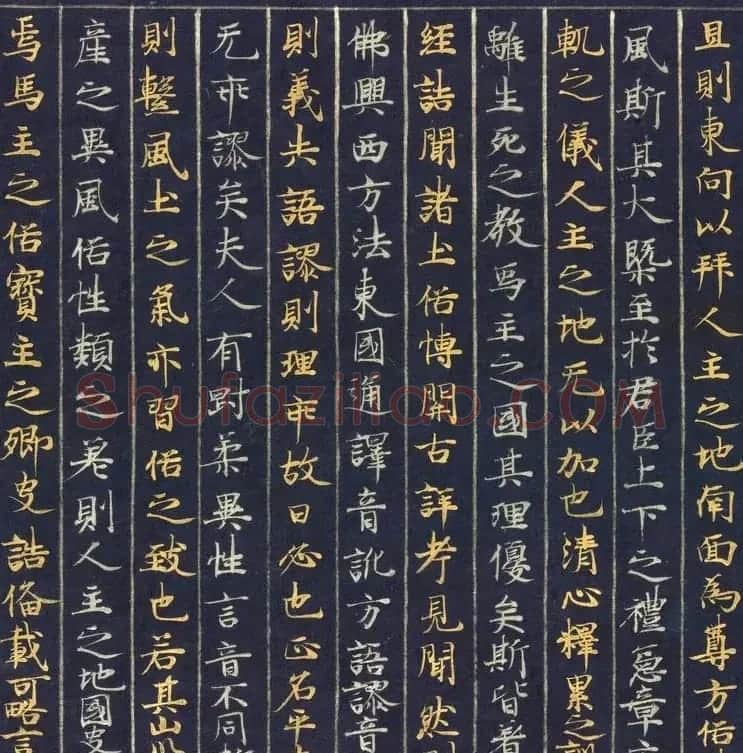 且則東向以拜人主之地南面為尊方俗
風斯其大槩至於君臣上下之禮憲章
軌之儀人主之地无以加也清心釋累之
離生死之教象主之國其理優矣斯皆著
經誥聞諸土俗博關古詳考見聞然
佛興西方法東國通譯音訛方語謬音
則義失語謬則理乖故曰必也正名乎
无乖謬矣夫人有剛柔異性言音不同
則繫風土之氣亦習俗之致也若其山川
產之異風俗性類之差則人主之地國史
焉馬主之俗寶主之鄉史誥俻載可略言
Shufaziliao.COM